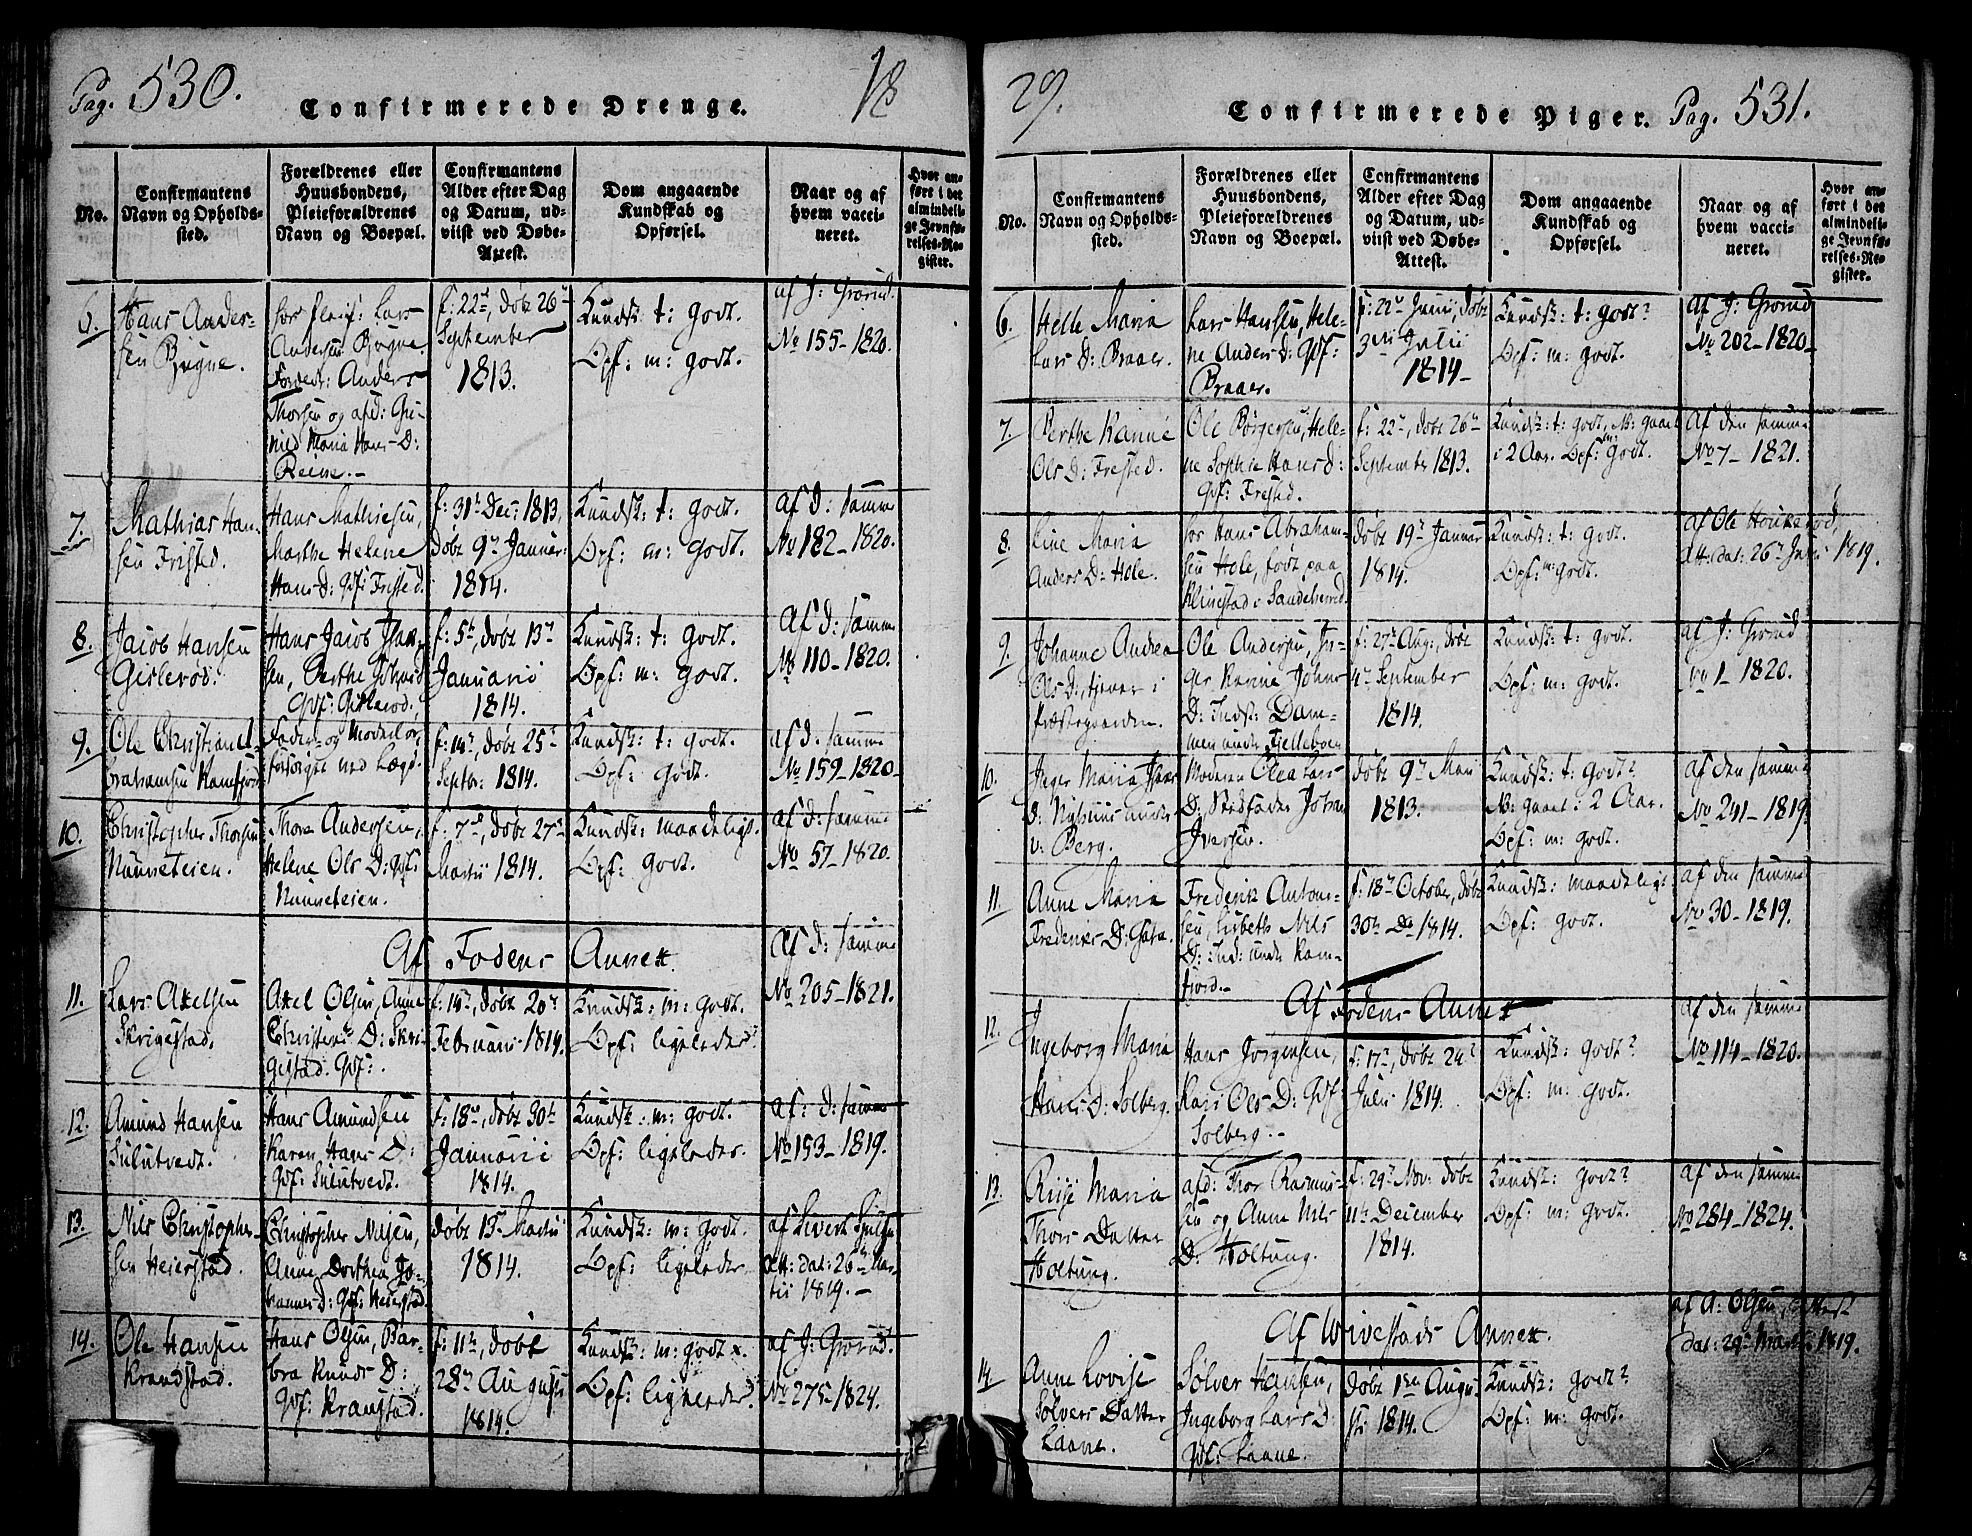 Pag. 530.
Confirmerede Drenge.
18
No.
Confirmantens
Navn og Opholds-
sted.
Forældrenes eller
Huusbondens,
Pleieforældrenes
Navn og Boepæl.
Confirmantens
Alder efter Dag
og Datum, ud-
viist ved Døbe-
Attest.
Dom angaaende
Kundskab og
Opførsel.
Naar og af
hvem vacci-
neret.
Hvor an-
ført i det
almindeli-
ge Jevnfø-
relses-Re-
gister.
6.
Hans Ander-
sen Bøgne.
Lars
Andersen Bøgne.
Anders
Thorsen og afd: Gu-
nild Maria Hans D:
Reene.
f: 22d, døbt 26d
September
1813.
Kundsk: t: godt.
Opf: m: godt.
af J: Grorud.
No 155-1820.
7.
Mathias Han-
sen Fristed.
Hans Mathiesen,
Marthe Helene
Hans D: Gdf: Fristed.
f: 31t Dec: 1813,
døbt 9de Januar:
1814.
Kundsk: t: godt.
Opf: m: godt.
af D: samme
No 182-1820.
8.
Jacob Hansen
Gislerød.
Hans Jacob Isac-
sen, Berthe
Gdf: Gislerød.
f: 5t, døbt 13de
Januarii
1814.
Kundsk: t: godt.
Opf: m: godt.
Af d: samme
No 110-1820.
9.
Ole Christian A-
brahamsen Ramfjord
Fader- og Moderløs
forsørget ved Lægd.
f: 14de, døbt 25de
Septbr: 1814.
Kundsk: t: godt.
Opf: godt.
af d. samme
No 159-1820
10.
Christopher Thorsen
Nunneteien.
Thore Andersen,
Helene Ols D: Gdf:
Nunneteien.
f: 7de, døbt 27de
Martii 1814.
Kundsk: maadeligt.
Opf: godt.
af d: samme
No 57-1820.
Af Fodens Annex.
11.
Lars Axelsen
Skrigestad.
Axel Olsen, Anne
Christens D: Skri-
gestad. Gdf:.
f: 14de, døbt 20de
Februarii 1814.
Kundsk: m: godt.
Opf: ligeledes
Af d: samme
No 205-1821.
12.
Amund Hansen
Sulutvedt.
Hans Amundsen
Karen Hans D:
Gdf: Sulutvedt.
f: 18de, døbt 30te
Januarii
1814.
Kundsk: m: godt.
Opf: ligeledes.
Af: d: samme
No 153-1819.
13.
Nils Christopher-
sen Heierstad.
Christopher Nilsen,
Anne Dorthea Jo-
hannes D: Gdf: Heierstad.
døbt 13de Martii
1814.
Kundsk: m: godt.
Opf: ligeledes
af Sivert
att: dat: 26de Mar-
tii 1819.
14.
Ole Hansen
Kranstad.
Hans Olsen, Bar-
bra Knuds D:
Gdf: Kranstad.
f: 11te, døbt
28de Augusti
1814.
Kundsk: m: godt.
Opf: ligeledes
af J: Grorud.
No 275-1824.
29.
Confirmerede Piger.
Pag. 531.
No.
Confirmantens
Navn og Opholds-
sted.
Forældrenes eller
Huusbondens,
Pleieforældrenes
Navn og Boepæl.
Confirmantens
Alder efter Dag
og Datum, ud-
viist ved Døbe-
Attest.
Dom angaaende
Kundskab og
Opførsel.
Naar og af
hvem vacci-
neret.
Hvor an-
ført i det
almindeli-
ge Jevnfø-
relses-Re-
gister.
6.
Helle Maria
Lars D: Braaer.
Lars Hansen, Hele-
ne Anders D: Gdf:
Braaer.
f: 22de Junii, døbt
3die Julii
1814
Kundsk: t: godt
Opf: m: godt.
Af J: Grorud
No 202-1820
7.
Berthe Karine
Ols D: Fresteed.
Ole Børgersen, Hele-
ne Sophie Hans D:
Gdf: Fresteed.
f: 22de, døbt 26de
September 1813.
Kundsk: t: godt, NB: gaaet
i 2 Aar. Opf: m: godt.
Af den samme
No 7-1821.
8.
Line Maria
Anders D: Hole.
hos Hans Abraham-
sen Hole, født paa
Klinestad i Sandeherred.
døbt 19de Januar
1814.
Kundsk: t: godt.
Opf: m: godt.
af Ole Houkerød,
att: dat: 26de Junii 1819.
9.
Johanne Andrea
Ols D:, tjener i
Præstegaarden.
Ole Andersen, In-
ger Karine Johns
D: Indst: Dam-
men under Fjelleboen
f: 27de Aug:, døbt
4de September
1814.
Kundsk: t: godt.
Opf: m: godt.
af J: Grorud
No 1-1820.
10.
Inger Maria Ivers
D: under
v: Berg.
Moderen Olea Lars
D: Stedfader Johan
Iversen.
døbt 9de Maii
1813.
Kundsk: t: godt
NB: gaaet i 2 Aar.
Opf: m: godt.
Af den samme
No 241-1819.
11.
Anne Maria
Frederics D:
Frederik Anton-
sen, Lisbeth Nils
D: Ind: under Ram-
fjord.
f: 18de October, døbt
30te Do 1814.
Kundsk: maadeligt
Opf: godt.
af den samme
No 30-1819.
Af Fodens Annex
12.
Ingeborg Maria
Hans D: Solberg.
Hans Jørgensen,
Kari Ols D: Gdf
Solberg.
f: 17de, døbt 24de
Julii 1814.
Kundsk: godt
Opf: m: godt.
Af den samme
No 114-1820.
13.
Maria
Thors Datter
Holtung.
afd: Thor Rasmus-
sen og Anne Nils
D: Holtung.
f: 29de Nov: døbt
11te December
1814.
Kundsk: godt
Opf: m: godt.
Af den samme
No 284-1824.
Af Wivestads Annex.
14
Anne Lovise
Sølvers Datter
Laane.
Sølver Hansen,
Ingeborg Lars D:
Gdf: Laane.
døbt 1ste Augu-
sti 1814.
Kundsk: godt
Opf: m: godt.
af A: Olsen, Attest
dat: 29de Martii 1819.